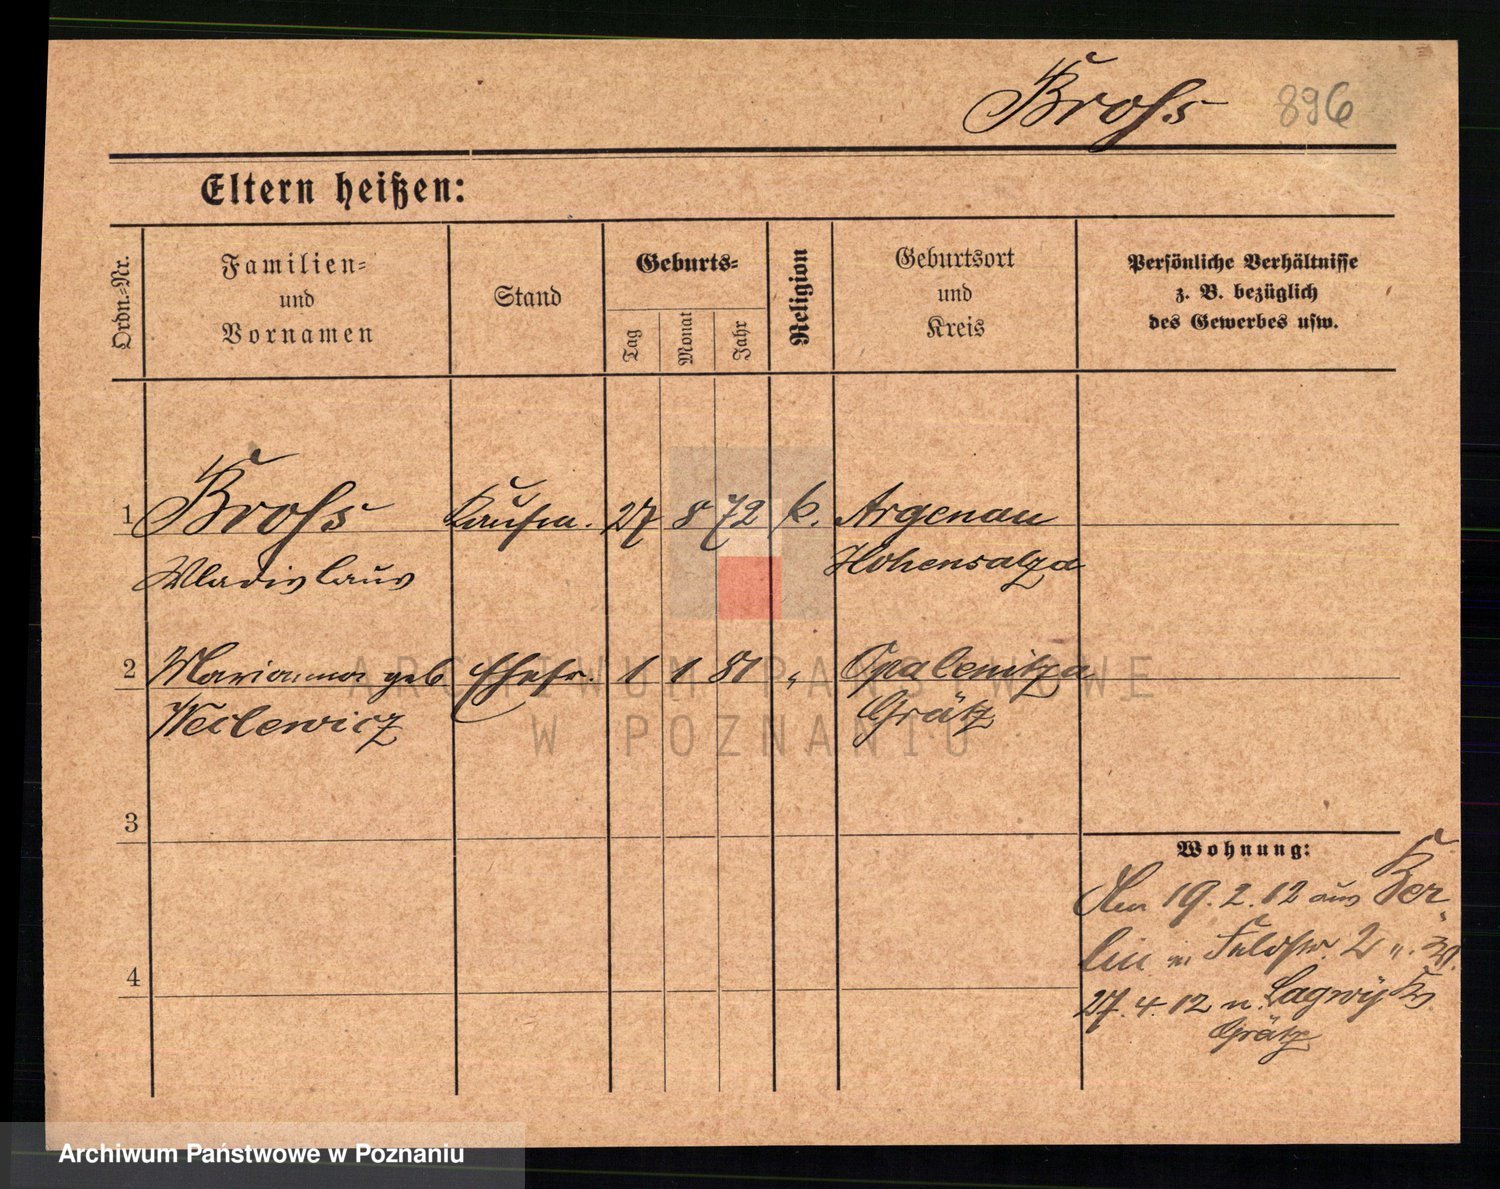 Brohs 896
Eltern heißen:
Ordn.-Nr.
Familien-
und
Vornamen
Stand
Geburts-
Tag
Monat
Jahr
Religion
Geburtsort
und
Kreis
Persönliche Verhältnisse
z. B. bezüglich
des Gewerbes usw.
1 Brohs Kaufm. 27 8 72 k. Argenau
Wladislaus Hohensalza
2 Marianna geb Ehefr. 1 1 81 " Opalenitza
Grätz
3
Wohnung:
19.2.12 aus Ber-
lin n. Feldstr. 2
4
27.4.12 n. Krs.
Grätz
ARCHIWUM PAŃSTWOWE
W POZNANIU
Archiwum Państwowe w Poznaniu